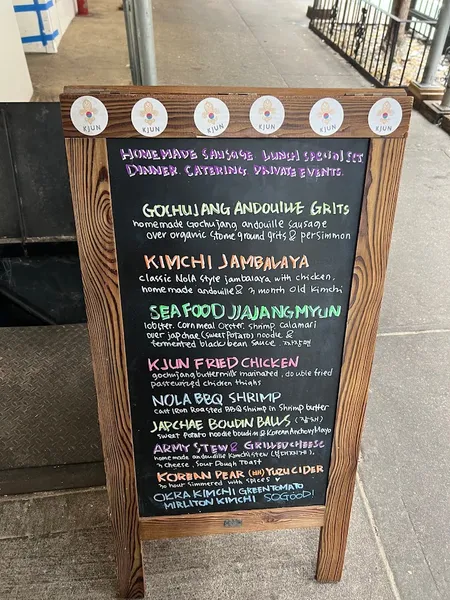 KJUN KJUN KJUN KJUN KJUN KJUN
HOMEMADE SAUSAGE LUNCH SPECIAL SET
DINNER. CATERING. PRIVATE EVENTS.
GOCHUJANG ANDOUILLE GRITS
homemade Gochujang andouille sausage
over organic stone ground grits & persimmon
KIMCHI JAMBALAYA
classic NOLA style jambalaya with chicken,
homemade andouille & 3 month old Kimchi
SEAFOOD JJAJANGMYUN
lobster. cornmeal Oyster. shrimp. calamari
over japchae (sweet potato) noodle &
fermented black bean sauce. 짜장면
KJUN FRIED CHICKEN
gochujang buttermilk marinated, double fried
pasteurized chicken thighs
NOLA BBQ SHRIMP
cast iron Roasted BBQ shrimp in Shrimp butter
JAPCHAE BOUDIN BALLS
sweet potato noodle boudin & Korean Anchovy Mayo
ARMY STEW & GRILLED CHEESE
homemade andouille kimchi stew (부대찌개),
3 cheese, Sour Dough Toast
KOREAN PEAR (배) YUZU CIDER
30 hour simmered with spices ♥
OKRA KIMCHI GREEN TOMATO
MIRLITON KIMCHI SO GOOD!